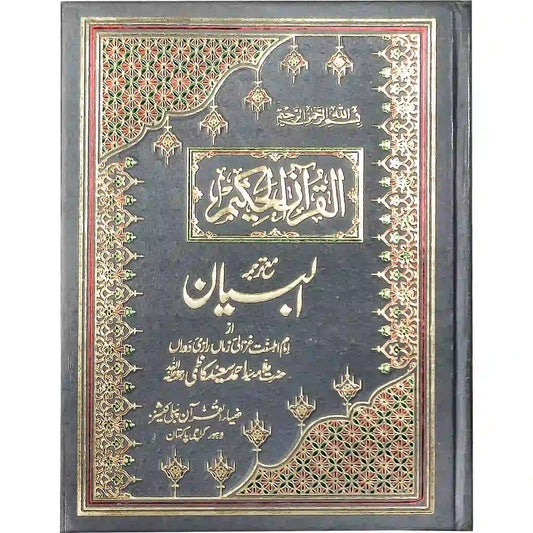 بسم الله الرحمن الرحيم
القرآن الحكيم
مع ترجمہ
البیان
از
امام اہلسنت غزالیٔ زماں رازیٔ دوراں
حضرت علامہ سید احمد سعید کاظمی رحمۃ اللہ علیہ
ضیاء القرآن پبلی کیشنز
لاہور کراچی پاکستان